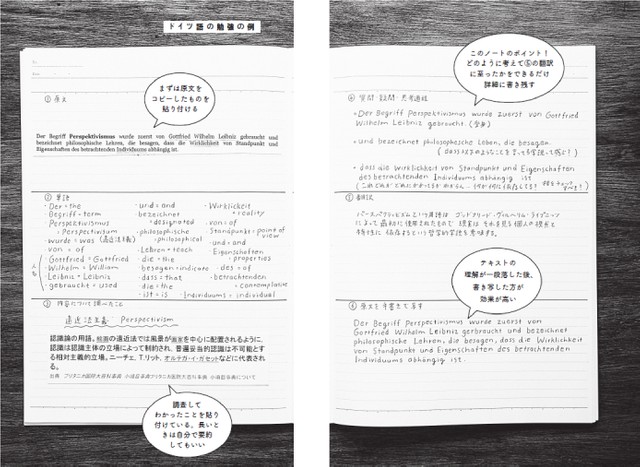 ドイツ語の勉強の例
まずは原文を
コピーしたものを
貼り付ける
① 原文
Der Begriff Perspektivismus wurde zuerst von Gottfried Wilhelm Leibniz gebraucht und
bezeichnet philosophische Lehren, die besagen, dass die Wirklichkeit von Standpunkt und
Eigenschaften des betrachtenden Individuums abhängig ist.
② 単語
・Der = the
・Begriff = term
Perspektivismus
= Perspectivism
・wurde = was (過去法)
・von = of
・Gottfried = Gottfried
・Wilhelm = William
・Leibniz = Leibniz
・gebraucht = used
・und = and
・bezeichnet
= designated
・philosophische
= philosophical
・Lehren = teach
・die = the
・besagen = indicate
・dass = that
・die = the
・ist = is
・Wirklichkeit
= reality
・von = of
・Standpunkt = point of
view
・und = and
・Eigenschaften
= properties
・des = of
・betrachtenden
= contemplative
・Individuums = individual
③ 内容について調べたこと
遠近法主義 Perspectivism
認識論の用語。絵画の遠近法では風景が画家を中心に配置されるように、
認識は認識主体の立場によって制約され、普遍妥当的認識は不可能とす
る相対主義的立場。ニーチェ、T.リット、オルテガ・イ・ガセットなどに代表され
る。
調査して
わかったことを貼り
付けている。長いと
きは自分で要約
してもいい
このノートのポイント!
どのように考えて⑤の翻訳
に至ったかをできるだけ
詳細に書き残す
④ 質問・疑問・思考過程
・Der Begriff Perspektivismus wurde zuerst von Gottfried
Wilhelm Leibniz gebraucht.
・und bezeichnet philosophische Lehren, die besagen.
・dass die Wirklichkeit von Standpunkt und Eigenschaften
des betrachtenden Individuums abhängig ist
テキストの
理解が一段落した後、
書き写した方が
効果が高い
原文を手書きで写す
Der Begriff Perspektivismus wurde zuerst von
Gottfried Wilhelm Leibniz gebraucht und bezeichnet
philosophische Lehren, die besagen, dass die Wirklichkeit
von Standpunkt und Eigenschaften des betrachtenden
Individuums abhängig ist.